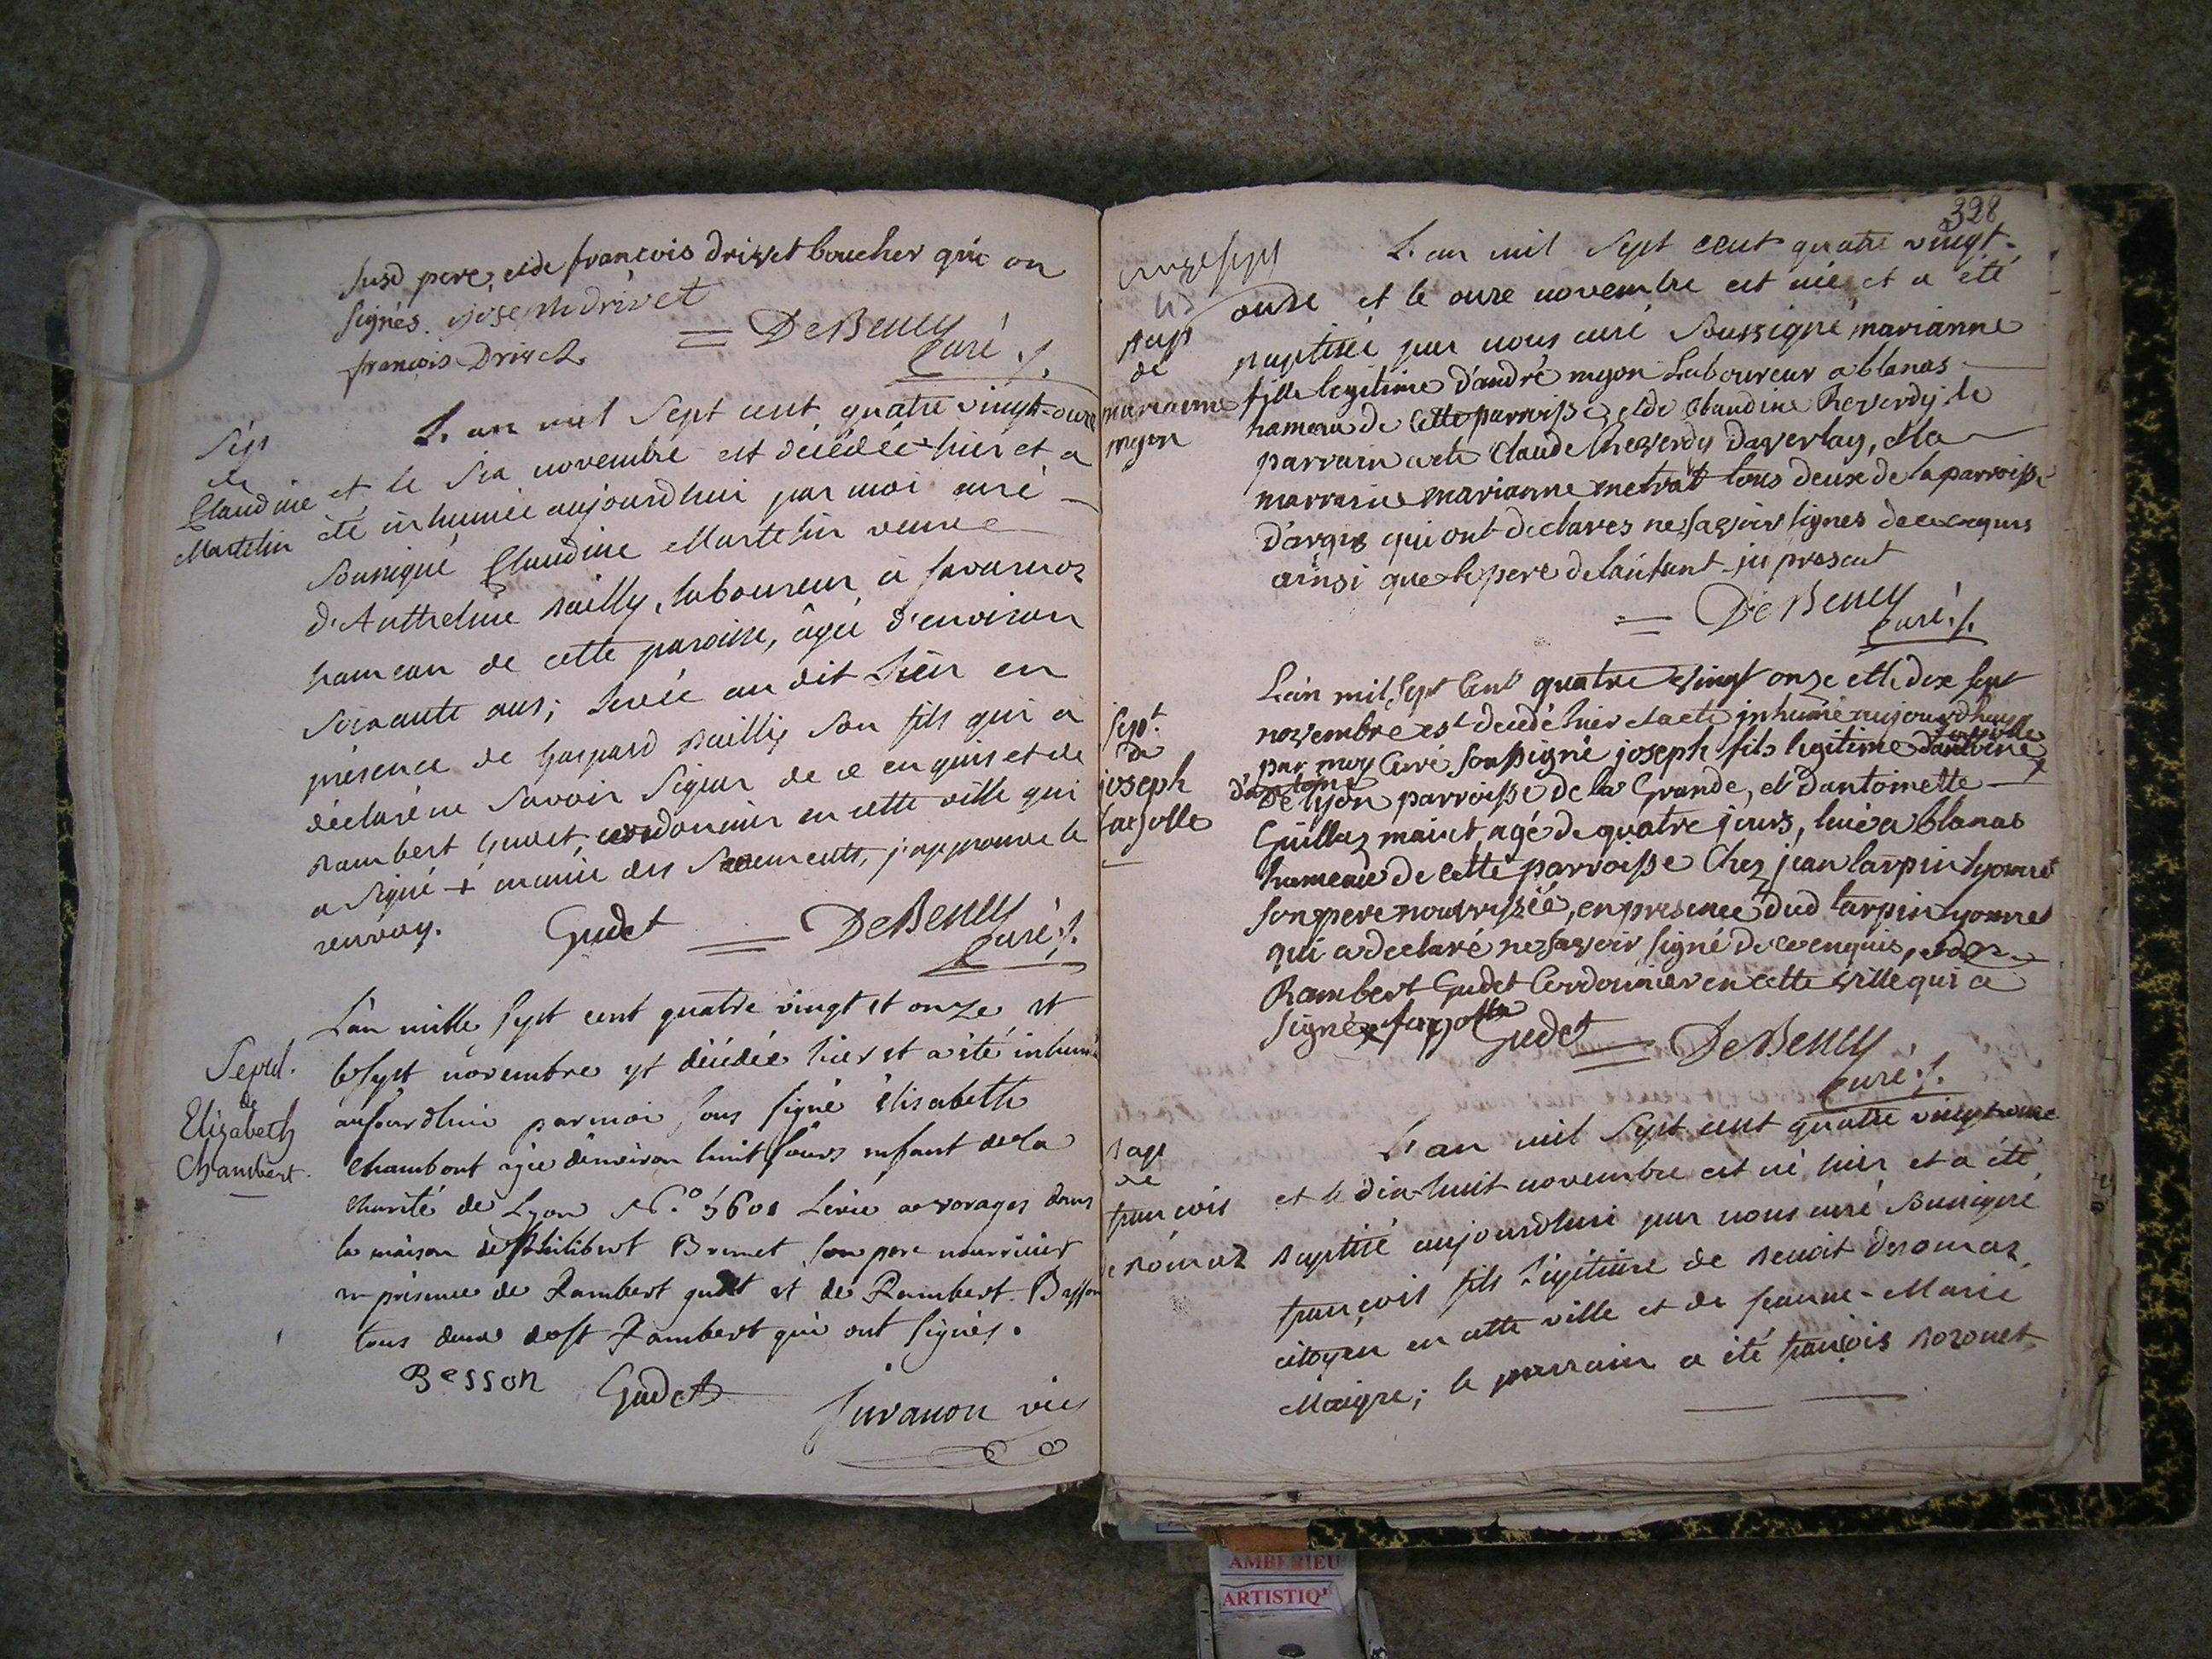 susd pere, et de francois drivet boucher qui on
signés. joseph drivet
= DeBeney
curé ./.
francois Drivet
Sep
de
Claudine
Martelin
L'an mil sept cent quatre vingt-onze
et le six novembre est décédée hier et a
été inhumée aujourdhui par moi curé
soussigné Claudine Martelin veuve
d'Anthelme Bailly, laboureur à
hameau de cette paroisse, âgée d'environ
soixante ans; levée au dit lieu en
présence de Gaspard Bailly son fils qui a
déclaré ne savoir signer de ce enquis et de
Rambert Gudet, cordonnier en cette ville qui
a signé + munie des sacrements, j'approuve le
renvoy.
Gudet = DeBeney
curé ./.
Sepul.
de
Elizabeth
Chambert.
L'an mille sept cent quatre vingt et onze et
le sept novembre est décédée hier et a été inhumé
aujourdhui par moi sous signé élisabeth
chambont agée d'environ huit jours enfant de la
charité de Lyon N.o 5601 levée a vorages dans
la maison de philibert Brunet son pere nourricier
en présence de Rambert gudet et de Rambert Besson
tous deux de st Rambert qui ont signés.
Besson Gudet
Juvanon vic
328
Bap
de
marianne
mgon
L'an mil sept cent quatre vingt-
onze et le onze novembre est née et a été
baptisée par nous curé soussigné, marianne
fille legitime d'andré mgon Laboureur a blanas
hameau de cette parroisse, et de Claudine Reverdy le
parrain a ete Claude Reverdy , et la
marraine marianne metrat tous deux de la parroisse
d'argis qui ont declarés ne savoir signés de ce enquis
ainsi que le pere de l'anfant ici present
= DeBeney
curé ./.
Sept.
de
joseph
farjolle
L'an mil sept cent quatre vingt onze et le dix sept
novembre est decedé hier et a eté inhumé aujourdhuy
par moy curé soussigné joseph fils legitime d'antoine farjolle
d'antoine
de lyon parroisse de la Grande, et d'antoinette
Guillaz maint agé de quatre jours, levé a blanas
hameau de cette parroisse Chez jean larpin lyonnet
son pere nourrissié, en presence dud larpin lyonnet
qui a declaré ne savoir signé de ce enquis, et de
Rambert Gudet Cordonnier en cette ville qui a
signé x farjolle
Gudet = DeBeney
curé ./.
Bap
de
francois
L'an mil sept cent quatre vingt-onze
et le dix-huit novembre est né hier et a été
baptisé aujourdhui par nous curé soussigné
françois fils légitime de Benoit Deromas
citoyen en cette ville et de Jeanne-Marie
Maigre; le parrain a été françois Bozonet
AMBERIEU
ARTISTIQ'